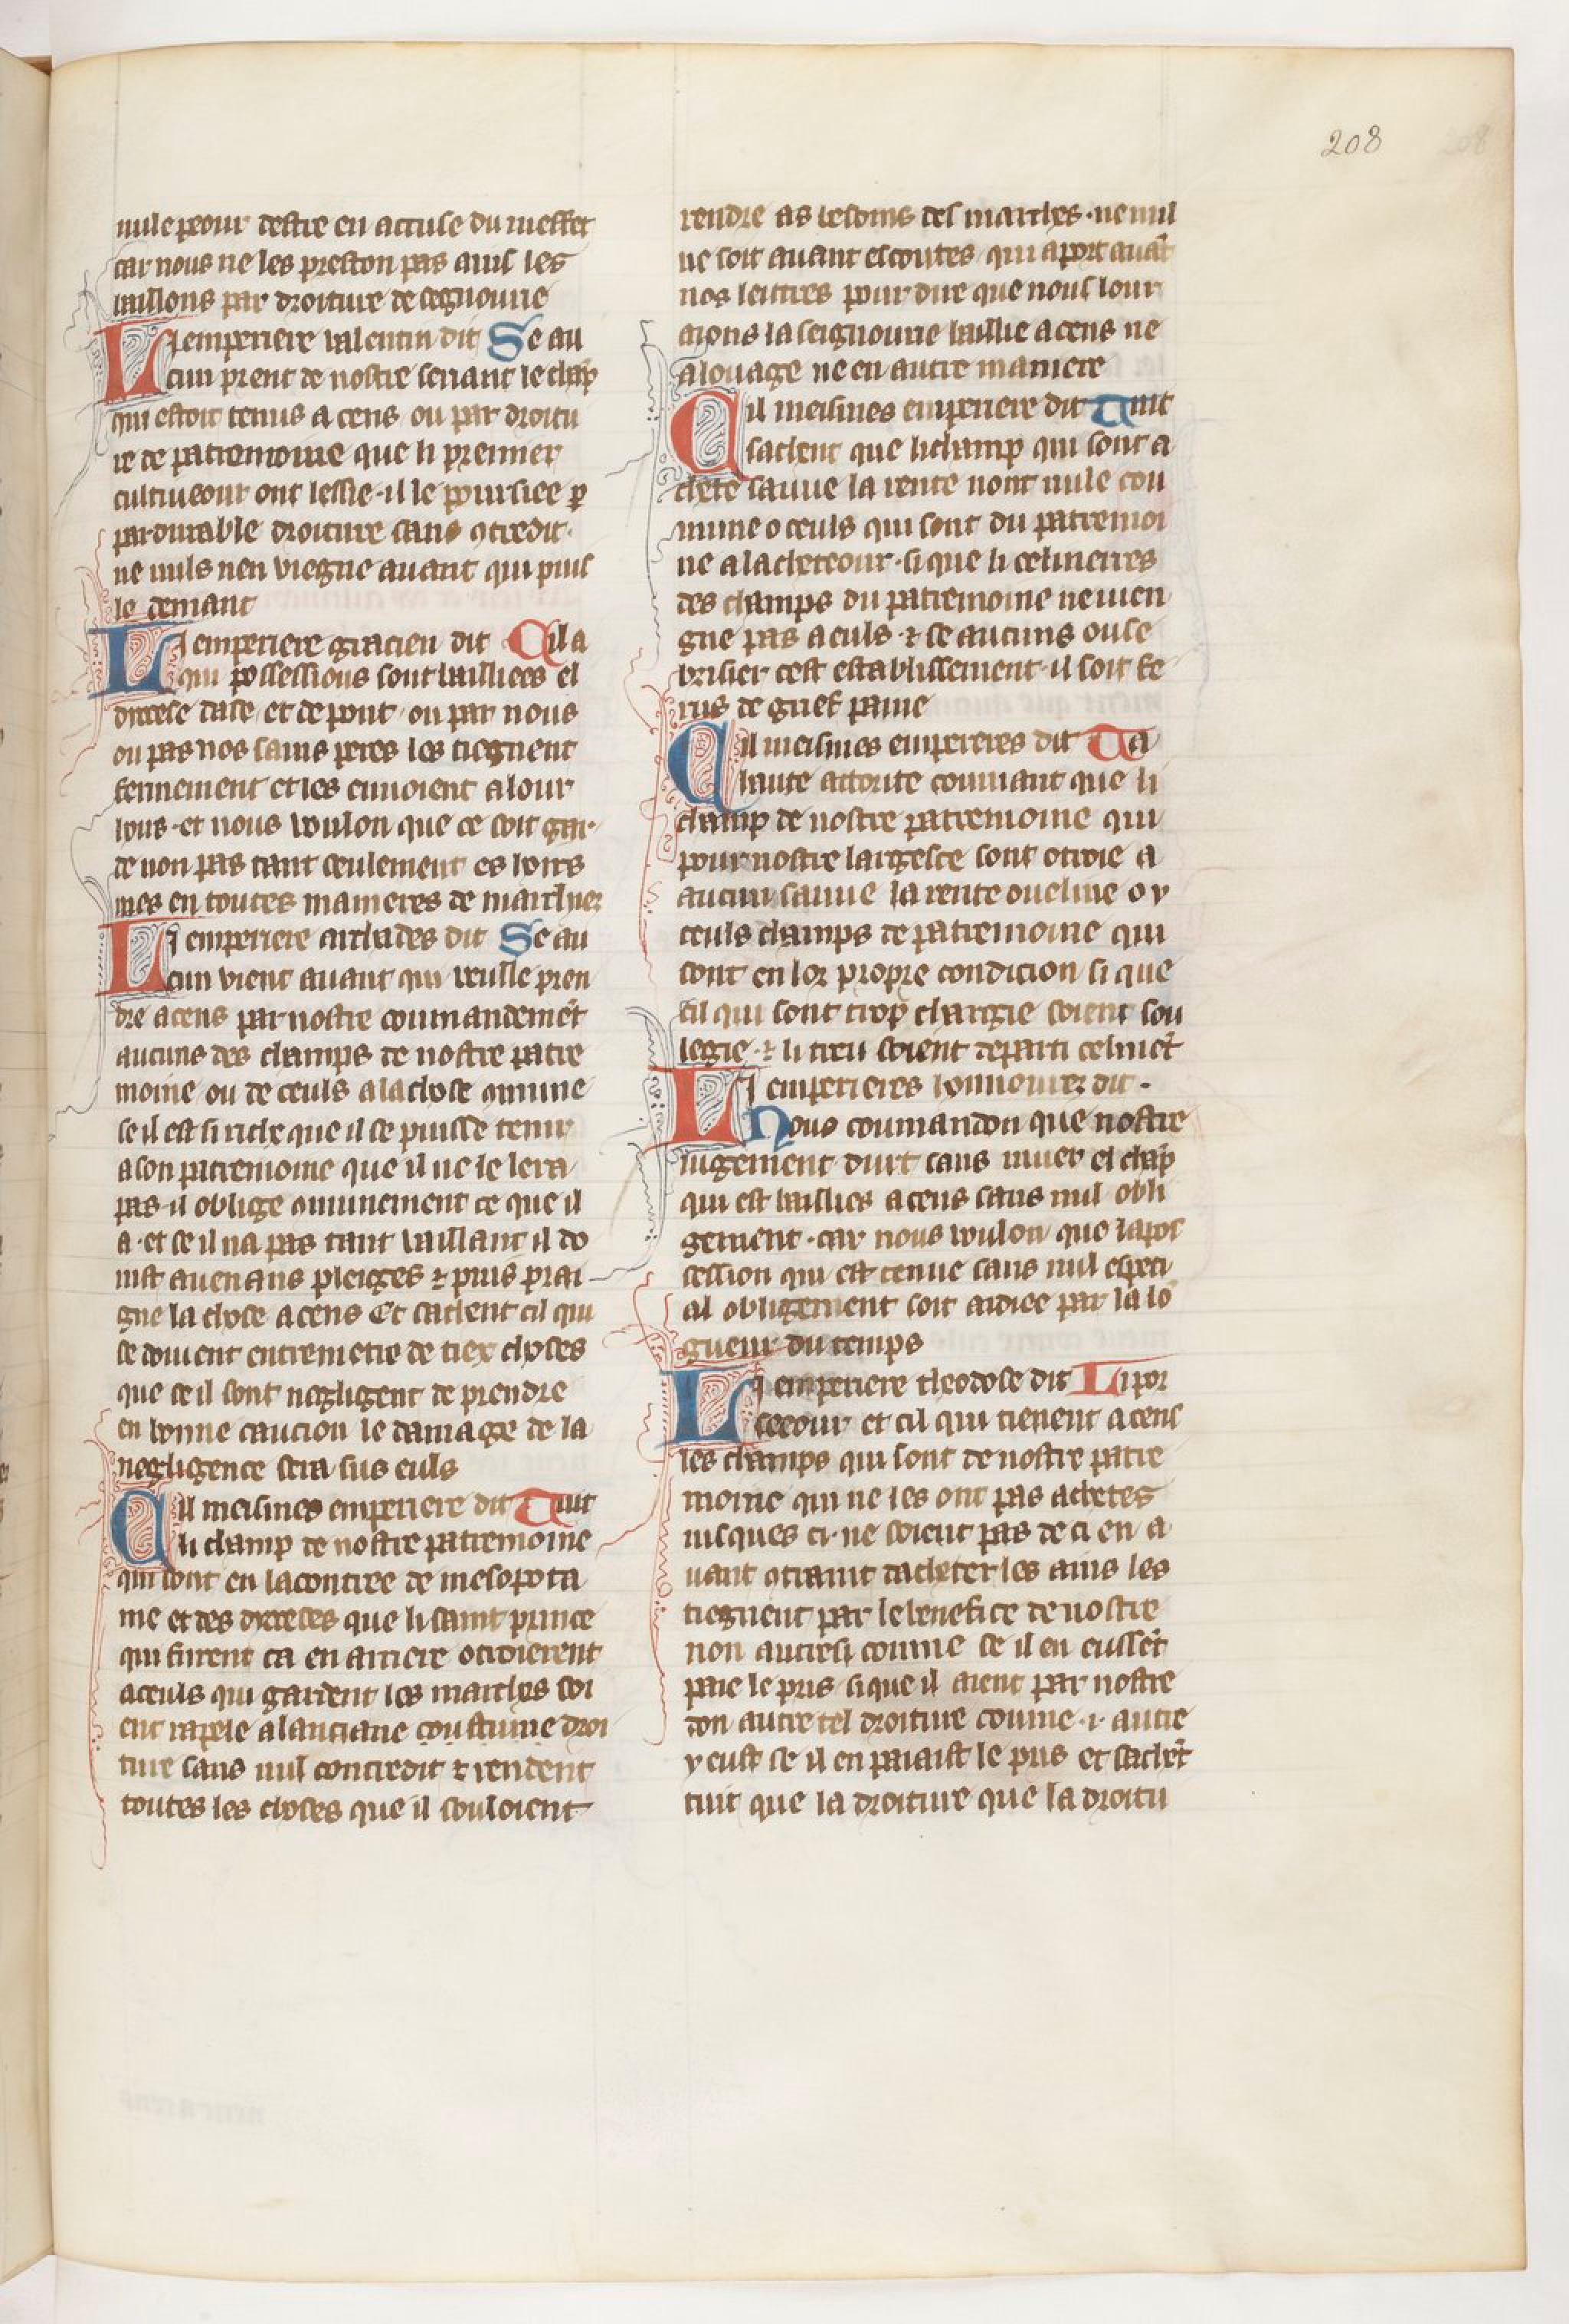 208
nule peour destre en accuse du meffet
car nous ne les preston pas ains les
baillons par droiture de segnourie
Li emperiere valentin dit Se au
cun prent de nostre senant le chãp
qui estoit tenus a cens ou par droitu
re de patremoine que li premier
cultiueour ont lessie · il le poursiee ꝑ
pardurable droiture sans ꝯtredit ·
ne nuls nen viegne auant qui puis
le demant
Li emperiere gracien dit Cil a
qui possessions sont bailliees el
dyocese dase et de pont ou par nous
ou pas nos sains peres les tiegnent
fermement et les enuoient a lour
hoirs · et nous voulon que ce soit gar
de non pas tant seulement es hoirs
mes en toutes manieres de marchiez
Li emperiere archades dit Se au
cun vient auant qui veulle pren
dre a cens par nostre coumandemẽt
aucuns des champs de nostre patre
moine ou de ceuls a la chose ꝯmune
se il est si riche que il se puisse tenir
a son patremoine que il ne le lera
pas il oblige ꝯmunement ce que il
a · et se il na pas tant vaillant il do
inst auenans pleiges ⁊ puis prai
gne la chose a cens Et sachent cil qui
se doiuent entremetre de tiex choses
que se il sont negligent de prendre
en bonne caucion le damage de la
negligence sera sus euls
Cil meismes emperiere dit Tuit
li champ de nostre patremoine
qui sont en la contree de mesopota
me et des dyoceses que li saint prince
qui furent ca en arriere otroierent
a ceuls qui gardent les marches soi
ent rapele a lanciane coustume droi
ture sans nul contredit ⁊ rendent
toutes les choses que il souloient
rendre as besoins des marches · ne nul
ne soit auant escoutes qui aport auãt
nos lettres pour dire que nous lour
aions la seignourie baillie a cens ne
a louage ne en autre maniere
Cil meismes emperiere dit Tuit
sachent que li champ qui sont a
chete sauue la rente nont nule cou
mune o ceuls qui sont du patremoi
ne a lacheteour · si que li celineires
des champs du patremoine ne uien
gne pas a euls · ⁊ se aucuns ouse
brisier cest establissement il soit fe
rus de grief paine
Cil meismes empereres dit Ta
haute attorite coumant que li
champ de nostre patremoine qui
pour nostre largesce sont otroie a
aucun sauue la rente oueline o y
ceuls champs de patremoine qui
sont en lor propre condicion si que
cil qui sont trop chargie soient sou
legie · ⁊ li treu soient departi celmẽt
Li emperieres honnourez dit ·
Nous coumandon que nostre
iugement durt sans muer el chãp
qui est bailliez a cens sans nul obli
gement · car nous voulon que la pos
cession qui est tenue sans nul especi
al obligement soit aidiee par la lõ
gueur du temps
Li emperiere theodose dit Li por
seeour et cil qui tienent a cens
les champs qui sont de nostre patre
moine qui ne les ont pas achetes
iusques ci · ne soient pas de ci en a
uant ꝯtraint dacheter les ains les
tiegnent par le benefice de nostre
non autresi coume se il en eussẽt
paie le pris si que il aient par nostre
don autretel droiture coume · i · autre
y eust se il en paiast le pris et sachẽt
tuit que la droiture que la droitu